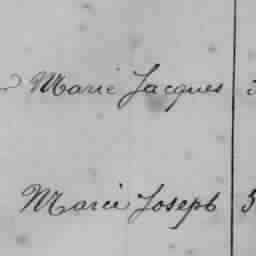 Marie Jacques
Marie Joseph 5